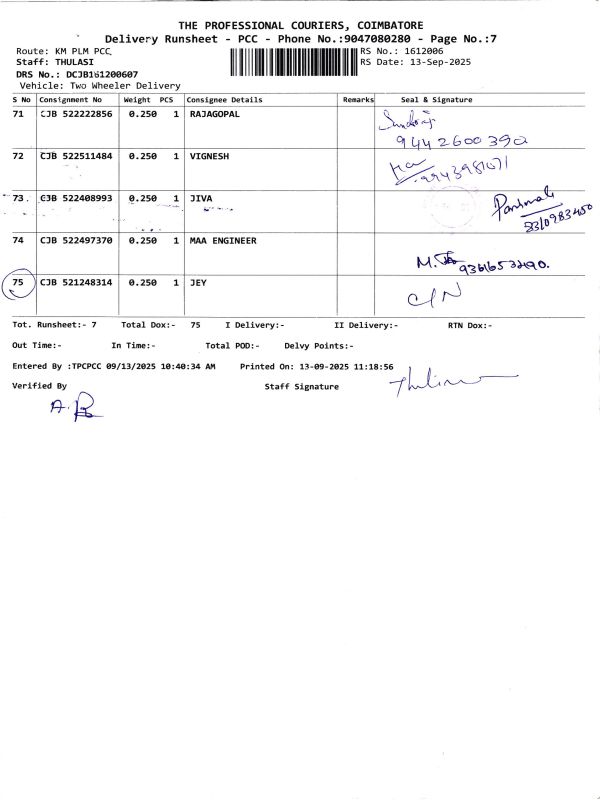 THE PROFESSIONAL COURIERS, COIMBATORE
Delivery Runsheet - PCC - Phone No.:9047080280 - Page No.:7
Route: KM PLM PCC RS No.: 1612006
Staff: THULASI RS Date: 13-Sep-2025
DRS No.: DCJB161200607
Vehicle: Two Wheeler Delivery
S No Consignment No Weight PCS Consignee Details Remarks Seal & Signature
71 CJB 522222856 0.250 1 RAJAGOPAL
9442600390
72 CJB 522511484 0.250 1 VIGNESH
9943981071
73 CJB 522408993 0.250 1 JIVA
74 CJB 522497370 0.250 1 MAA ENGINEER
M.
9361653490.
75 CJB 521248314 0.250 1 JEY
C/N
Tot. Runsheet:- 7 Total Dox:- 75 I Delivery:- II Delivery:- RTN Dox:-
Out Time:- In Time:- Total POD:- Delvy Points:-
Entered By :TPCPCC 09/13/2025 10:40:34 AM Printed On: 13-09-2025 11:18:56
Verified By Staff Signature